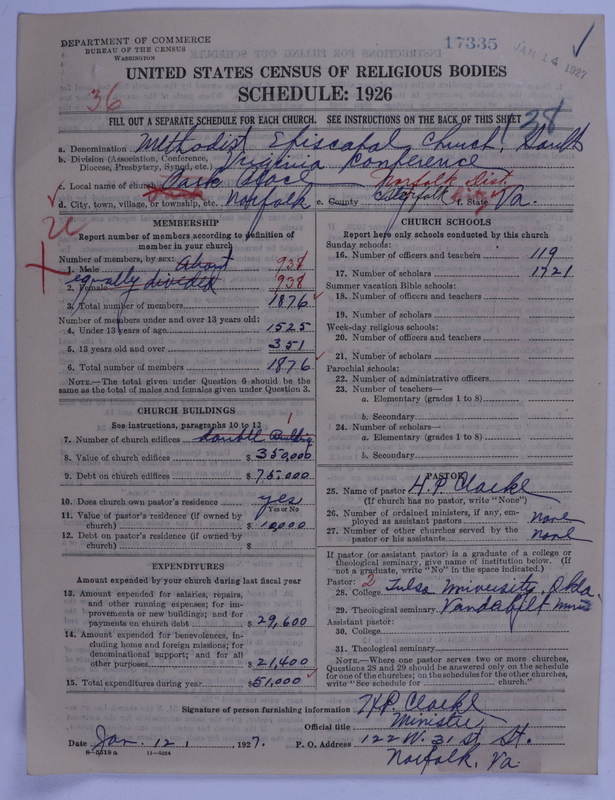 DEPARTMENT OF COMMERCE
BUREAU OF THE CENSUS
WASHINGTON
17335
JAN 14 1927
UNITED STATES CENSUS OF RELIGIOUS BODIES
SCHEDULE: 1926
36
FILL OUT A SEPARATE SCHEDULE FOR EACH CHURCH. SEE INSTRUCTIONS ON THE BACK OF THIS SHEET
138
a. Denomination Methodist Episcopal Church, South
b. Division (Association, Conference, Diocese, Presbytery, Synod, etc.) Virginia Conference
c. Local name of church Park Place Norfolk Dist.
d. City, town, village, or township, etc. Norfolk e. County Norfolk City f. State Va.
MEMBERSHIP
Report number of members according to definition of
member in your church
Number of members, by sex:
1. Male About 938
2. Female equally divided 938
3. Total number of members 1876
Number of members under and over 13 years old:
4. Under 13 years of age 1525
5. 13 years old and over 351
6. Total number of members 1876
NOTE.—The total given under Question 6 should be the
same as the total of males and females given under Question 3.
CHURCH BUILDINGS
See instructions, paragraphs 10 to 12
7. Number of church edifices double Building 1
8. Value of church edifices $350,000
9. Debt on church edifices $75,000
10. Does church own pastor's residence yes
Yes or No
11. Value of pastor's residence (if owned by
church) $10,000
12. Debt on pastor's residence (if owned by
church) $
EXPENDITURES
Amount expended by your church during last fiscal year
13. Amount expended for salaries, repairs,
and other running expenses; for im-
provements or new buildings; and for
payments on church debt $29,600
14. Amount expended for benevolences, in-
cluding home and foreign missions; for
denominational support; and for all
other purposes $21,400
15. Total expenditures during year $51,000
CHURCH SCHOOLS
Report here only schools conducted by this church
Sunday schools:
16. Number of officers and teachers 119
17. Number of scholars 1721
Summer vacation Bible schools:
18. Number of officers and teachers
19. Number of scholars
Week-day religious schools:
20. Number of officers and teachers
21. Number of scholars
Parochial schools:
22. Number of administrative officers
23. Number of teachers—
a. Elementary (grades 1 to 8)
b. Secondary
24. Number of scholars—
a. Elementary (grades 1 to 8)
b. Secondary
PASTOR
25. Name of pastor H. P. Clarke
(If church has no pastor, write "None")
26. Number of ordained ministers, if any, em-
ployed as assistant pastors None
27. Number of other churches served by the
pastor or his assistants None
If pastor (or assistant pastor) is a graduate of a college or
theological seminary, give name of institution below. (If
not a graduate, write "No" in the space indicated.)
Pastor: 2
28. College Tulsa University, Okla.
29. Theological seminary Vandabilt
Assistant pastor:
30. College
31. Theological seminary
NOTE.—Where one pastor serves two or more churches,
Questions 28 and 29 should be answered only on the schedule
for one of the churches; on the schedules for the other churches,
write "See schedule for church."
Signature of person furnishing information H.P. Clarke
Official title Minister
Date Jan. 12, 1927. P. O. Address 122 W. 31 st St.
8-5518a 11-9254 Norfolk, Va.